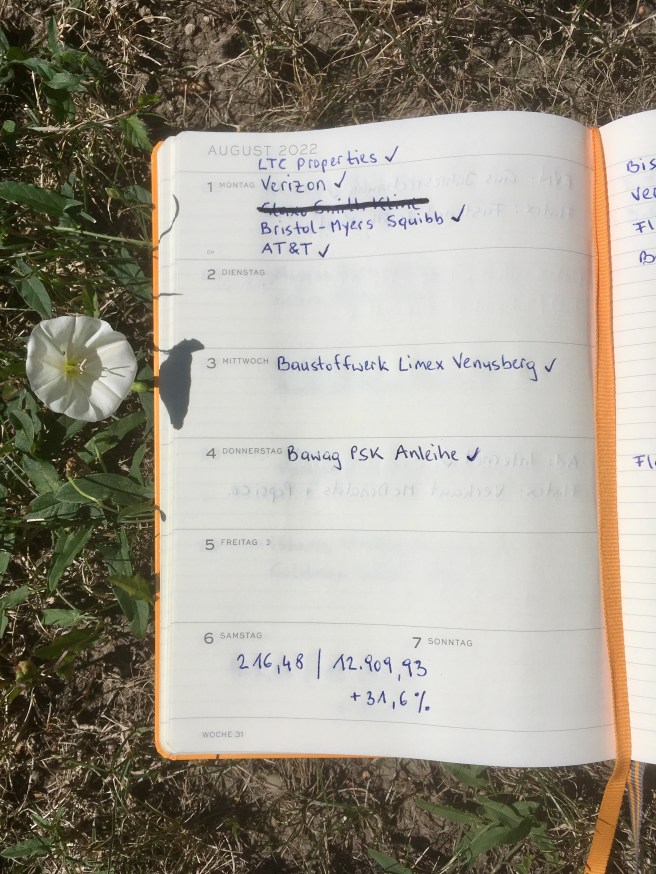 AUGUST 2022
LTC Properties ✓
1 MONTAG Verizon ✓
Glaxo Smith Kline
Bristol-Myers Squibb ✓
AT&T ✓
CH
2 DIENSTAG
3 MITTWOCH Baustoffwerk Limex Venusberg ✓
4 DONNERSTAG Bawag PSK Anleihe ✓
5 FREITAG
6 SAMSTAG 7 SONNTAG
216,48 | 12.909,93
+31,6%
WOCHE 31
Bis
Ver
Fl
B
Fl